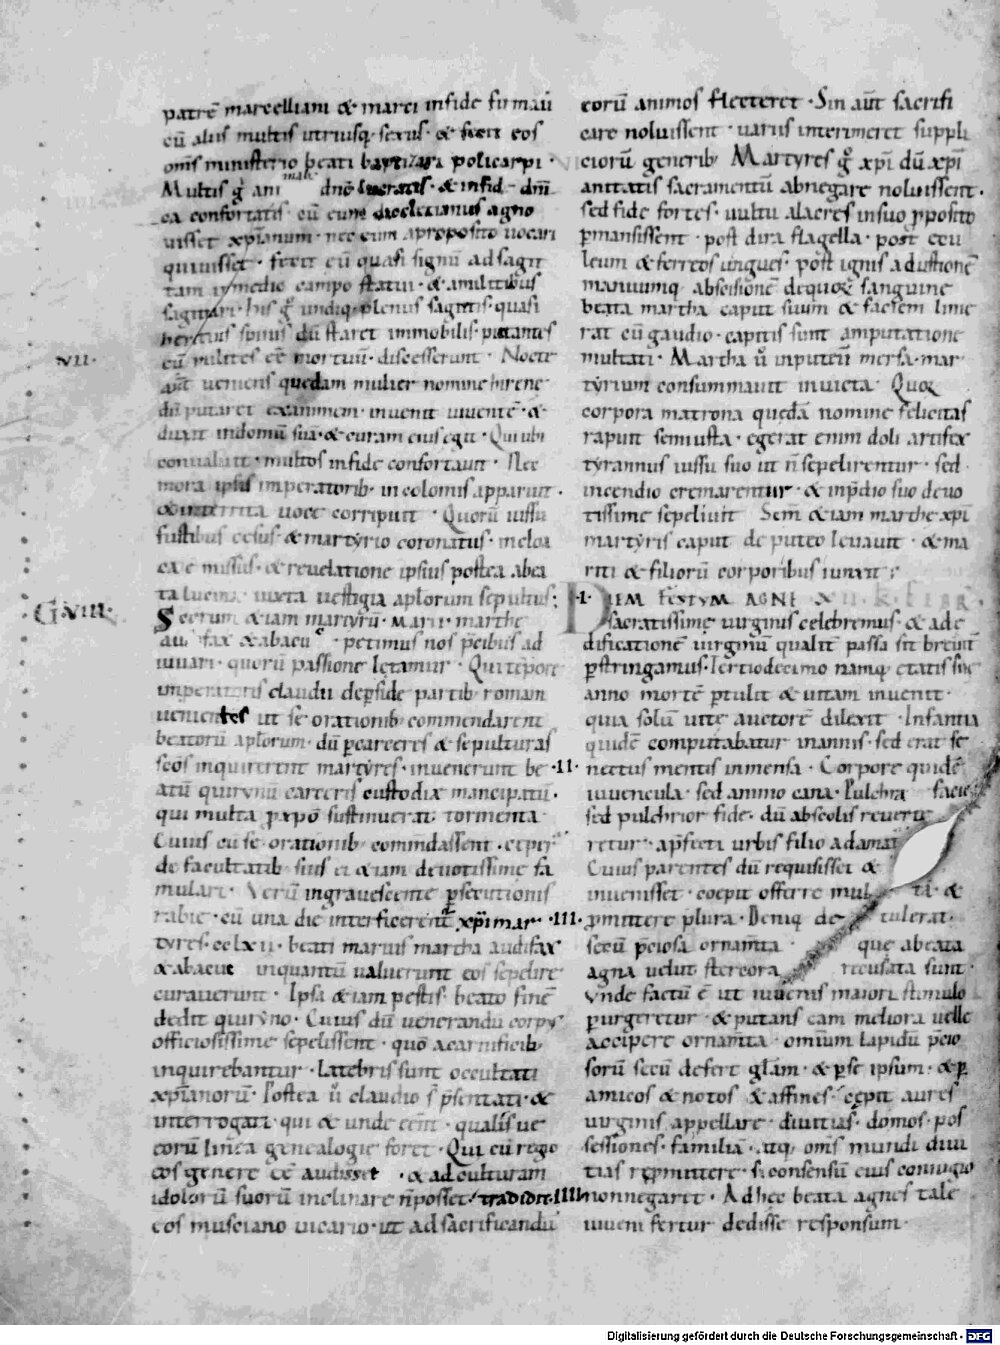 patrē marcelliani & marci infide firmaū
cū aliis multis utriusq; sexus · & fecit eos
om̄s ministerio beati baptizari policarpi ·
Multis g̊ ani mab; dn̄o lucratis · & infid dn̄i
ca confortatis · cū eum dioclecianus agno
uisset xp̄ianum · nec eum aproposito uocari
quiuisset · fecit eū quasi signū ad sagit
tam in medio campo statui · & amilitibus
sagittari · his g̊ undiq; plenus sagittis · quasi
hericius spinis dū staret immobilis · putantes
eū milites ēē mortuū · discesserunt · Nocte
VII ·
aūt ueniens quedam mulier nomine hirene
dū putaret exanimem · inuenit uiuentē · &
duxit indomū suā · & curam eius egit · Qui ubi
conualuit · multos infide confortauit · Nec
mora ipsis imperatorib; incolomis apparuit ·
& interrita uoce corripuit · Quorū iussu
fustibus cesus · & martyrio coronatus · incloa
ca ē missus · & reuelatione ipsius postea abea
ta lucina iuxta uestigia aplorum sepultus ;
G VIII ·
Secrum & iam martyrū · Marii · marthe
audifax & abacuc · petimus nos p̄cibus ad
iuuari · quorū passione letamur · Qui tēpore
imperatoris claudii depside partib; romam
uenientes ut se orationib; commendarent
beatorū aplorum · dū p carceres & sepulturas
sc̄os inquirerent martyres · inuenerunt be
atū quirynū carceris custodia mancipatū ·
qui multa p xp̄o sustinuerat tormenta ·
Cuius cū se orationib; commdassent · cepe
de facultatib; suis ei & iam deuotissime fa
mulari · Verū ingrauescente psecutionis
rabie · cū una die interficerent xp̄i mar
tyres · cclxii · beati marius martha audifax
& abacuc inquantū ualuerunt eos sepelire
curauerunt · Ipsa & iam pestis · beato finē
dedit quiryno · Cuius dū uenerandū corpus
officiosissime sepelissent · quō acarnificib;
inquirebantur · latebris sunt occultati
xp̄ianorū · Postea ū claudio s p̄sentati · &
interrogati · qui & unde eēnt · qualisue
eorū linea genealogie foret · Qui cū rego
eos genere ēē audisset · & ad culturam
idolorū suorū inclinare n̄ posset / tradidit
eos musciano uicario · ut ad sacrificandū
eorū animos flecteret · Sin aūt sacrifi
care noluissent · uariis interimeret suppli
ciorū generib; Martyres g̊ xp̄i dū xp̄i
anitatis sacramentū abnegare noluissent ·
sed fide fortes · uultu alacres in suo pposito
pmansissent · post dira flagella · post ecu
leum & ferreos ungues · post ignis adustionē
manuumq; abscisionē de quoꝝ sanguine
beata martha caput suum & faciem linie
rat cū gaudio · capitis sunt amputatione
multati · Martha ū in puteū mersa · mar
tyrium consummauit inuicta · Quoꝝ
corpora matrona quedā nomine felicitas
rapuit semiusta · egerat enim doli artifex
tyrannus iussu suo ut n̄ sepelirentur · sed
incendio cremarentur · & inp̄dio suo deuo
tissime sepeliuit Sem & iam marthe xp̄i
martyris caput de puteo leuauit · & ma
riti & filiorū corporibus iunxit ;
· I · DIEM FESTVM AGNE XII · K · FEBR ·
sacratissime uirginis celebremus · & ad e
dificationē uirginū qualit passa sit breuit
pstringamus · Tertiodecimo namq; etatis sue
anno mortē ptulit & uitam inuenit ·
quia solū uite auctorē dilexit · Infantia
quidē computabatur in annis · sed erat se
· II · nectus mentis inmensa · Corpore quidē
iuuencula · sed animo cana · Pulchra facie
sed pulchrior fide · dū abscolis reuerte
retur · ap̄fecti urbis filio adamat
Cuius parentes dū requisisset &
inuenisset · coepit offerre mul ta &
· III · pmittere plura · Deniq; de tulerat
secū p̄ciosa ornam̄ta que abeata
agna uelut stercora recusata sunt ·
Vnde factū ē ut iuuenis maiori stimulo
purgeretur · & putans eam meliora uelle
accipere ornam̄ta · omnium lapidū p̄cio
sorū secū defert gl̄am · & pse ipsum · & p
amicos & notos & affines · cepit aures
uirginis appellare · diuitias · domos · pos
sessiones · familiā · atq; om̄s mundi diui
tias repmittere · si consensū eius coniugio
IIII · nonnegaret · Ad hec beata agnes tale
iuueni fertur dedisse responsum ·
Digitalisierung gefördert durch die Deutsche Forschungsgemeinschaft - DFG